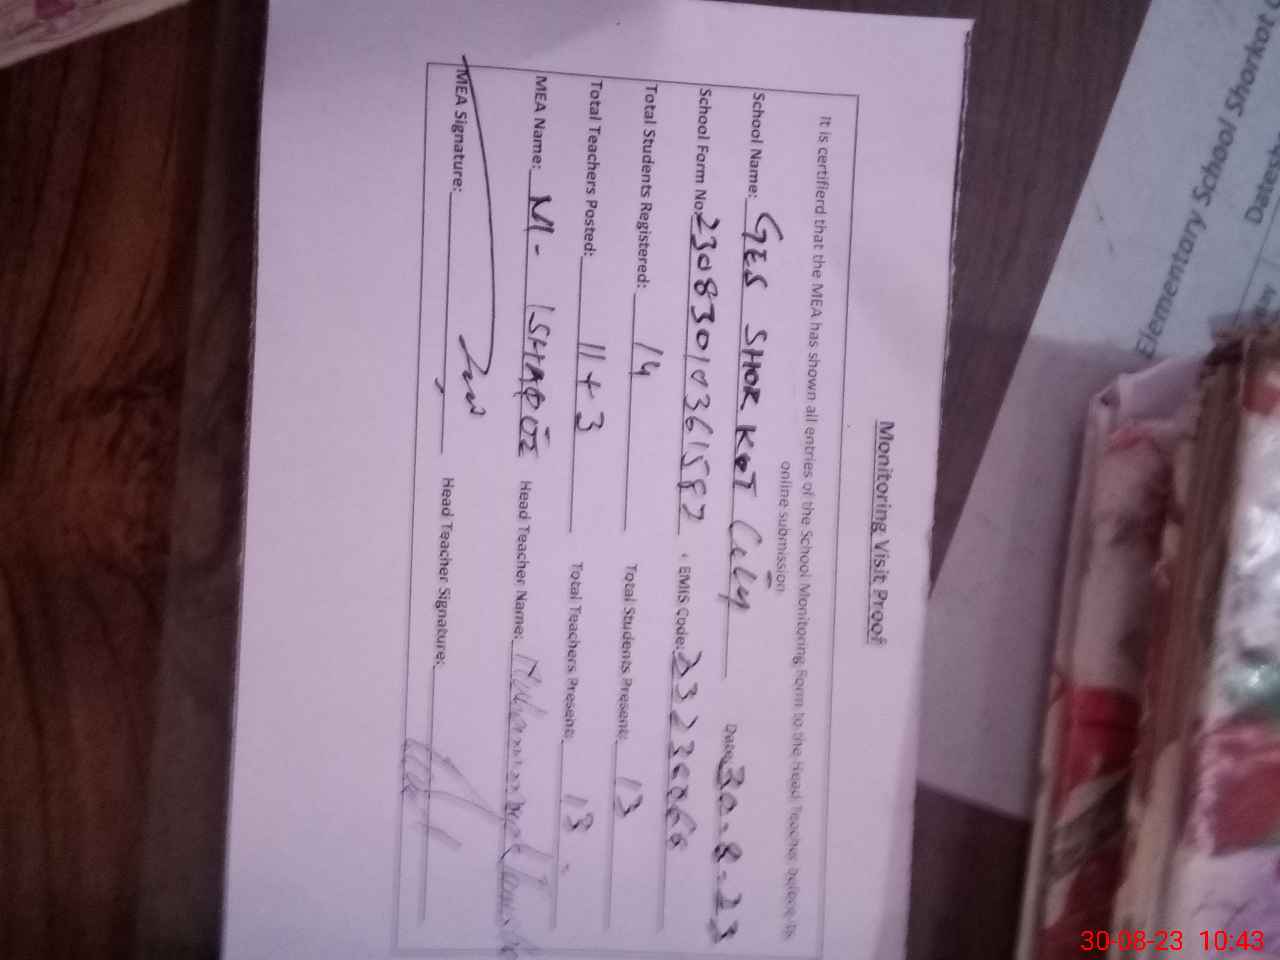 Monitoring Visit Proof
It is certifierd that the MEA has shown all entries of the School Monitoring Form to the Head Teacher before its
online submission
School Name: GES SHOR KOT City Date: 30-8-23
School Form No: 2308301036158 EMIS Code: 33230066
Total Students Registered: 14 Total Students Present: 13
Total Teachers Posted: 11+3 Total Teachers Present: 13
MEA Name: M- ISHAQUE Head Teacher Name: Muhammad
MEA Signature: Head Teacher Signature:
Elementary School Shorkot
30-08-23 10:43